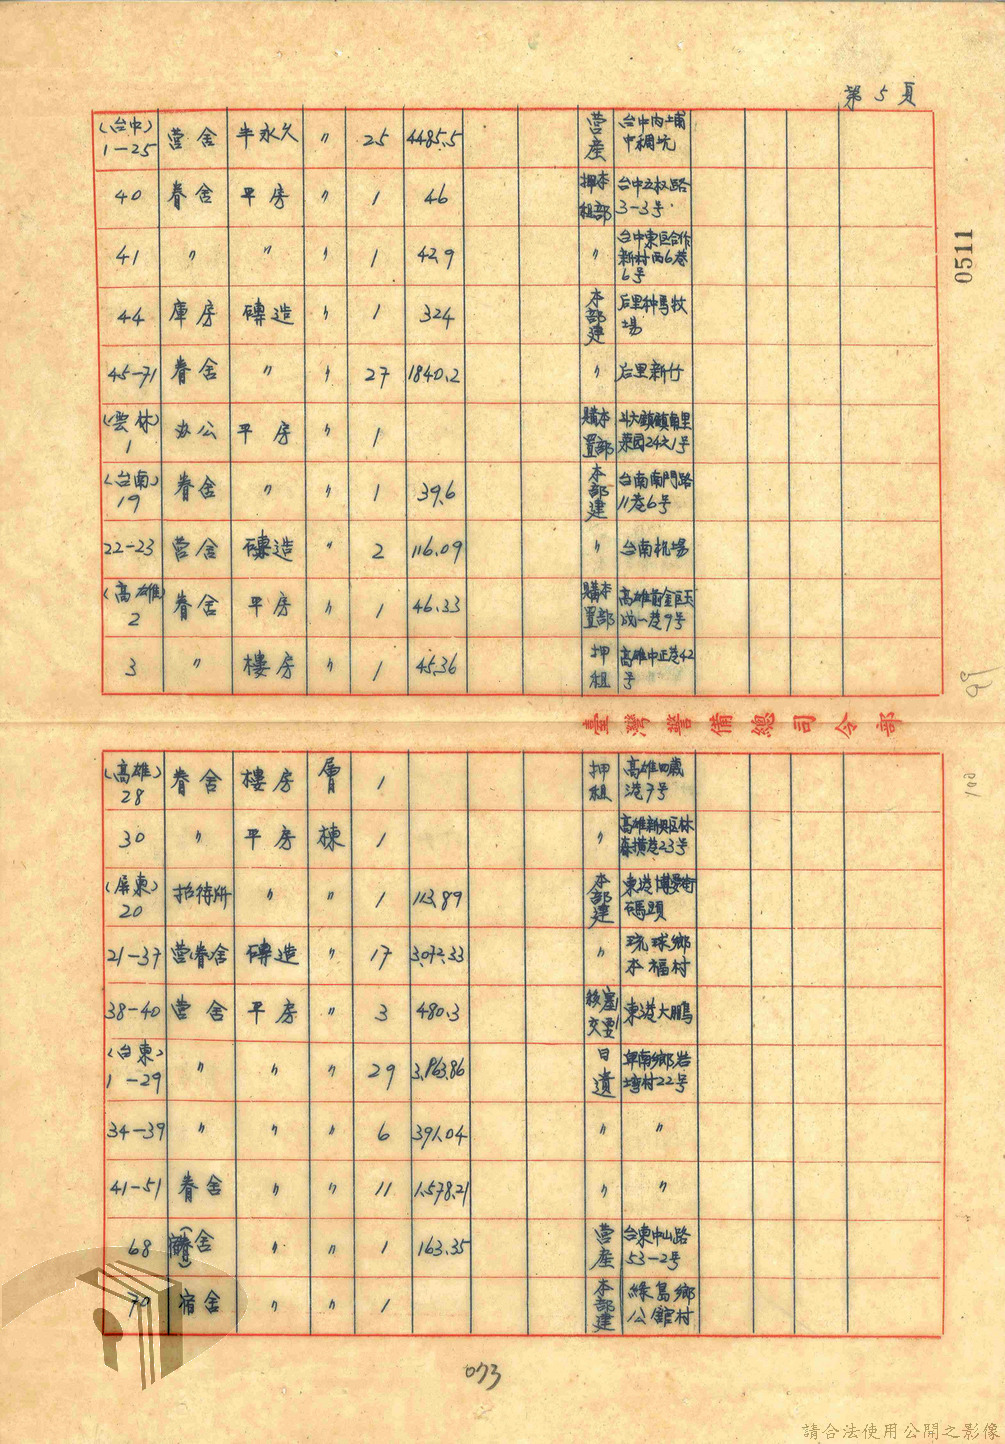 第5頁
0511
(台中) 1-25 营舍 半永久 〃 25 4485.5 营產 台中内埔中稠坑
40 眷舍 平房 〃 1 46 本部押租 台中五权路3-3号
41 〃 〃 〃 1 42.9 〃 台中東區合作新村西6巷6号
44 庫房 磚造 〃 1 324 本部建 后里种馬牧場
45-71 眷舍 〃 〃 27 1840.2 〃 后里新竹
(雲林) 1 办公 平房 〃 1 本部購置 斗六鎮鎮南里菜园24之1号
(台南) 19 眷舍 〃 〃 1 39.6 本部建 台南南門路11巷6号
22-23 营舍 磚造 〃 2 116.09 〃 台南机場
(高雄) 2 眷舍 平房 〃 1 46.33 本部購置 高雄前金區玉成一巷9号
3 〃 樓房 〃 1 45.36 押租 高雄中正巷42号
臺灣警備總司令部
99
100
(高雄) 28 眷舍 樓房 層 1 押租 高雄四歲港7号
30 〃 平房 棟 1 〃 高雄新興區林森橫巷23号
(屏東) 20 招待所 〃 〃 1 113.89 本部建 東港博愛街碼頭
21-37 营(眷)舍 磚造 〃 17 3,072.33 〃 琉球鄉本福村
38-40 营舍 平房 〃 3 480.3 要塞移交 東港大鵬
(台東) 1-29 〃 〃 〃 29 3,863.86 日遺 卑南鄉岩塆村22号
34-39 〃 〃 〃 6 391.04 〃 〃
41-51 眷舍 〃 〃 11 1,578.21 〃 〃
68 宿(眷)舍 〃 〃 1 163.35 营產 台東中山路53-2号
70 宿舍 〃 〃 1 本部建 綠島鄉公館村
073
請合法使用公開之影像